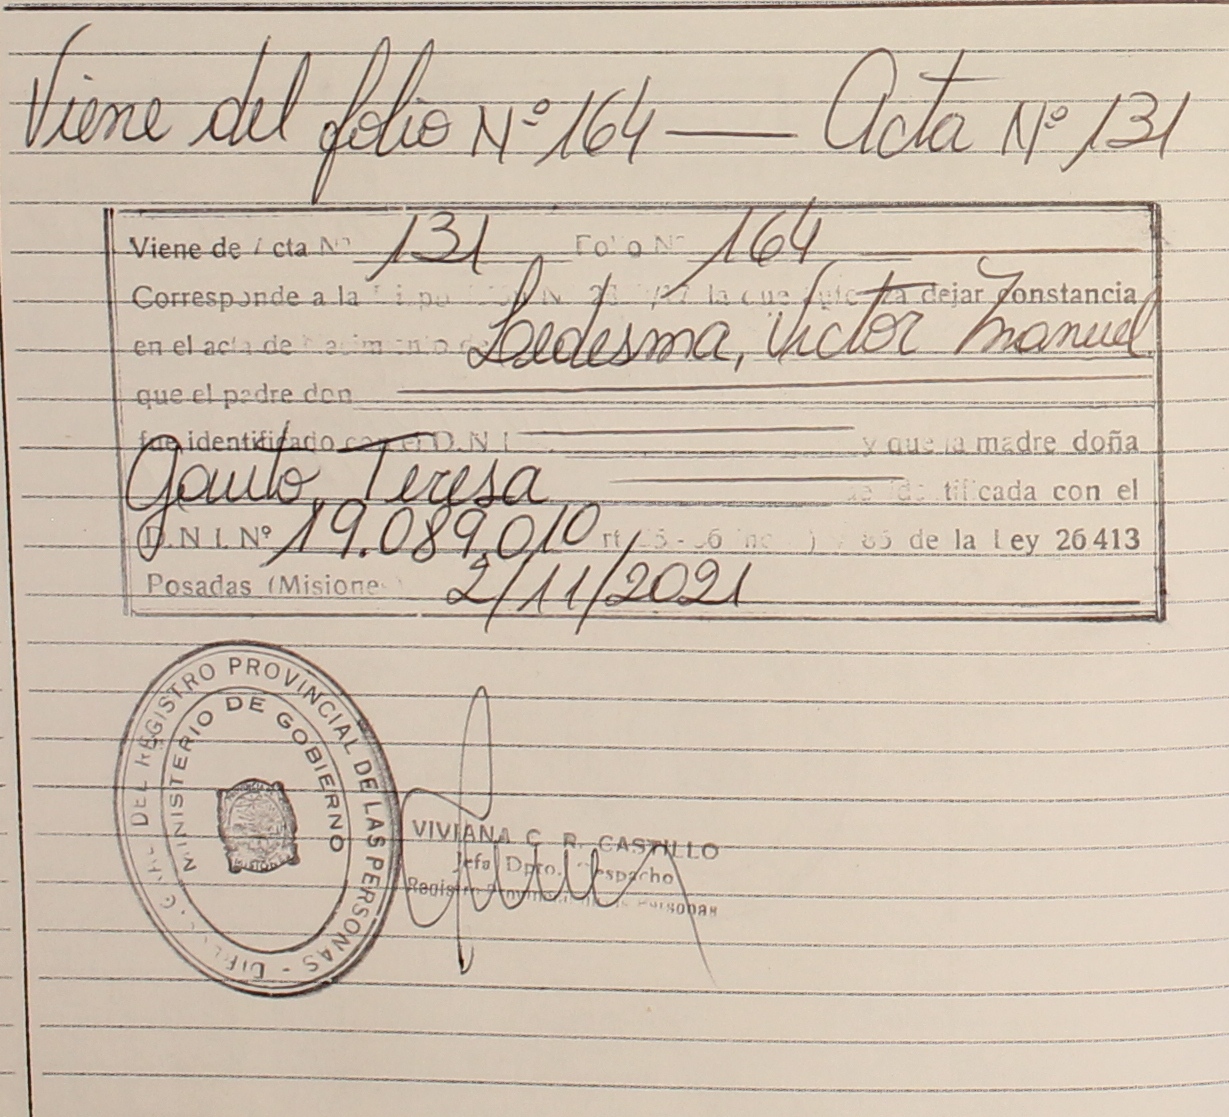 Viene del folio Nº 164 — Acta Nº 131
Viene de Acta Nº 131 Folio Nº 164
Corresponde a la la que autoriza dejar constancia
en el acta de nacimiento de Ledesma, Victor Manuel
que el padre don
fue identificado con el D.N.I. y que la madre doña
Gauto, Teresa identificada con el
D.N.I. Nº 19.089.010 de la Ley 26413
Posadas (Misiones) 2/11/2021
DEL REGISTRO PROVINCIAL DE LAS PERSONAS -
MINISTERIO DE GOBIERNO
VIVIANA C. R. CASTILLO
Jefa Dpto. Despacho
Registro Provincial de las Personas